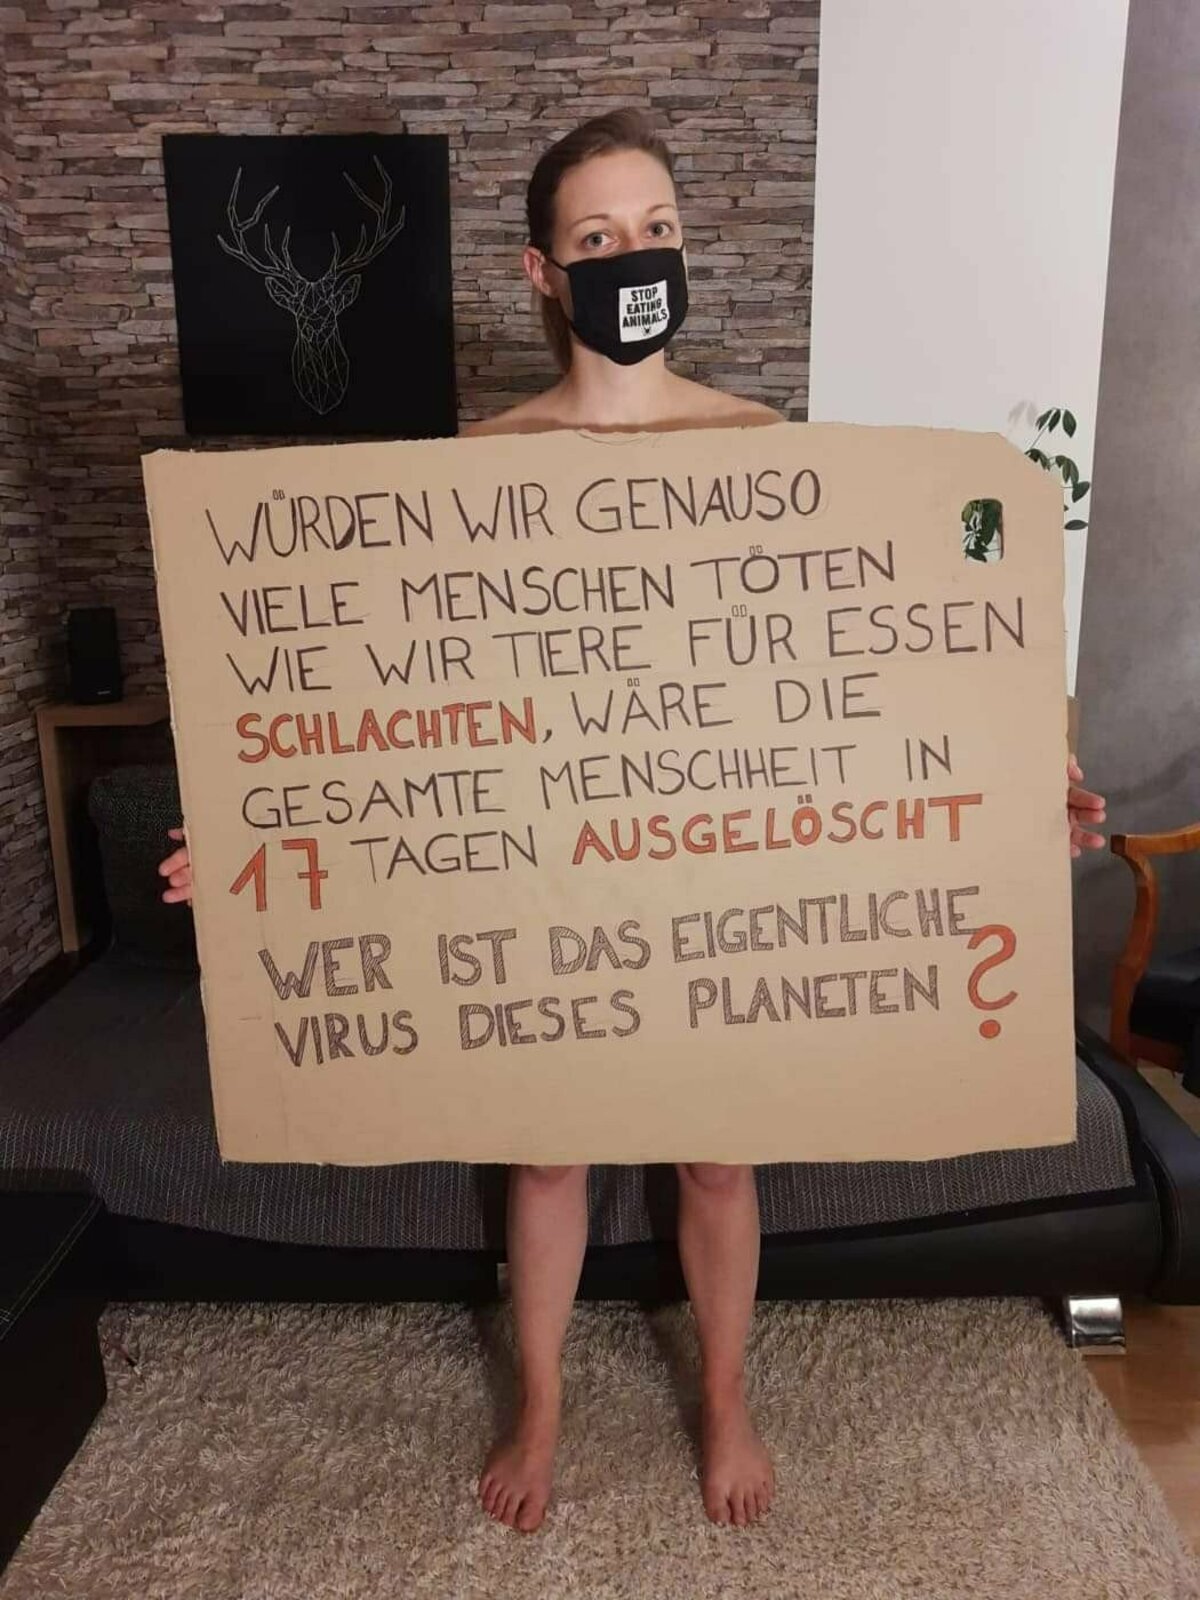 STOP
EATING
ANIMALS
WÜRDEN WIR GENAUSO
VIELE MENSCHEN TÖTEN
WIE WIR TIERE FÜR ESSEN
SCHLACHTEN, WÄRE DIE
GESAMTE MENSCHHEIT IN
17 TAGEN AUSGELÖSCHT
WER IST DAS EIGENTLICHE
VIRUS DIESES PLANETEN?